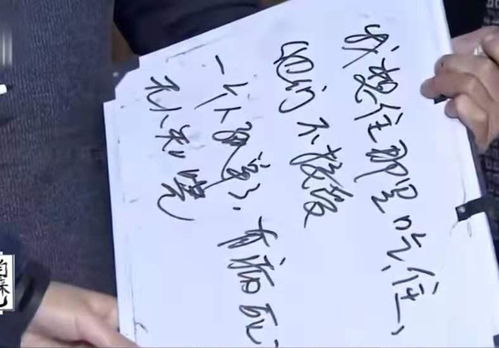 我想住那里吃住、
他们不接受
一个人孤寡、有病死、
无人知晓